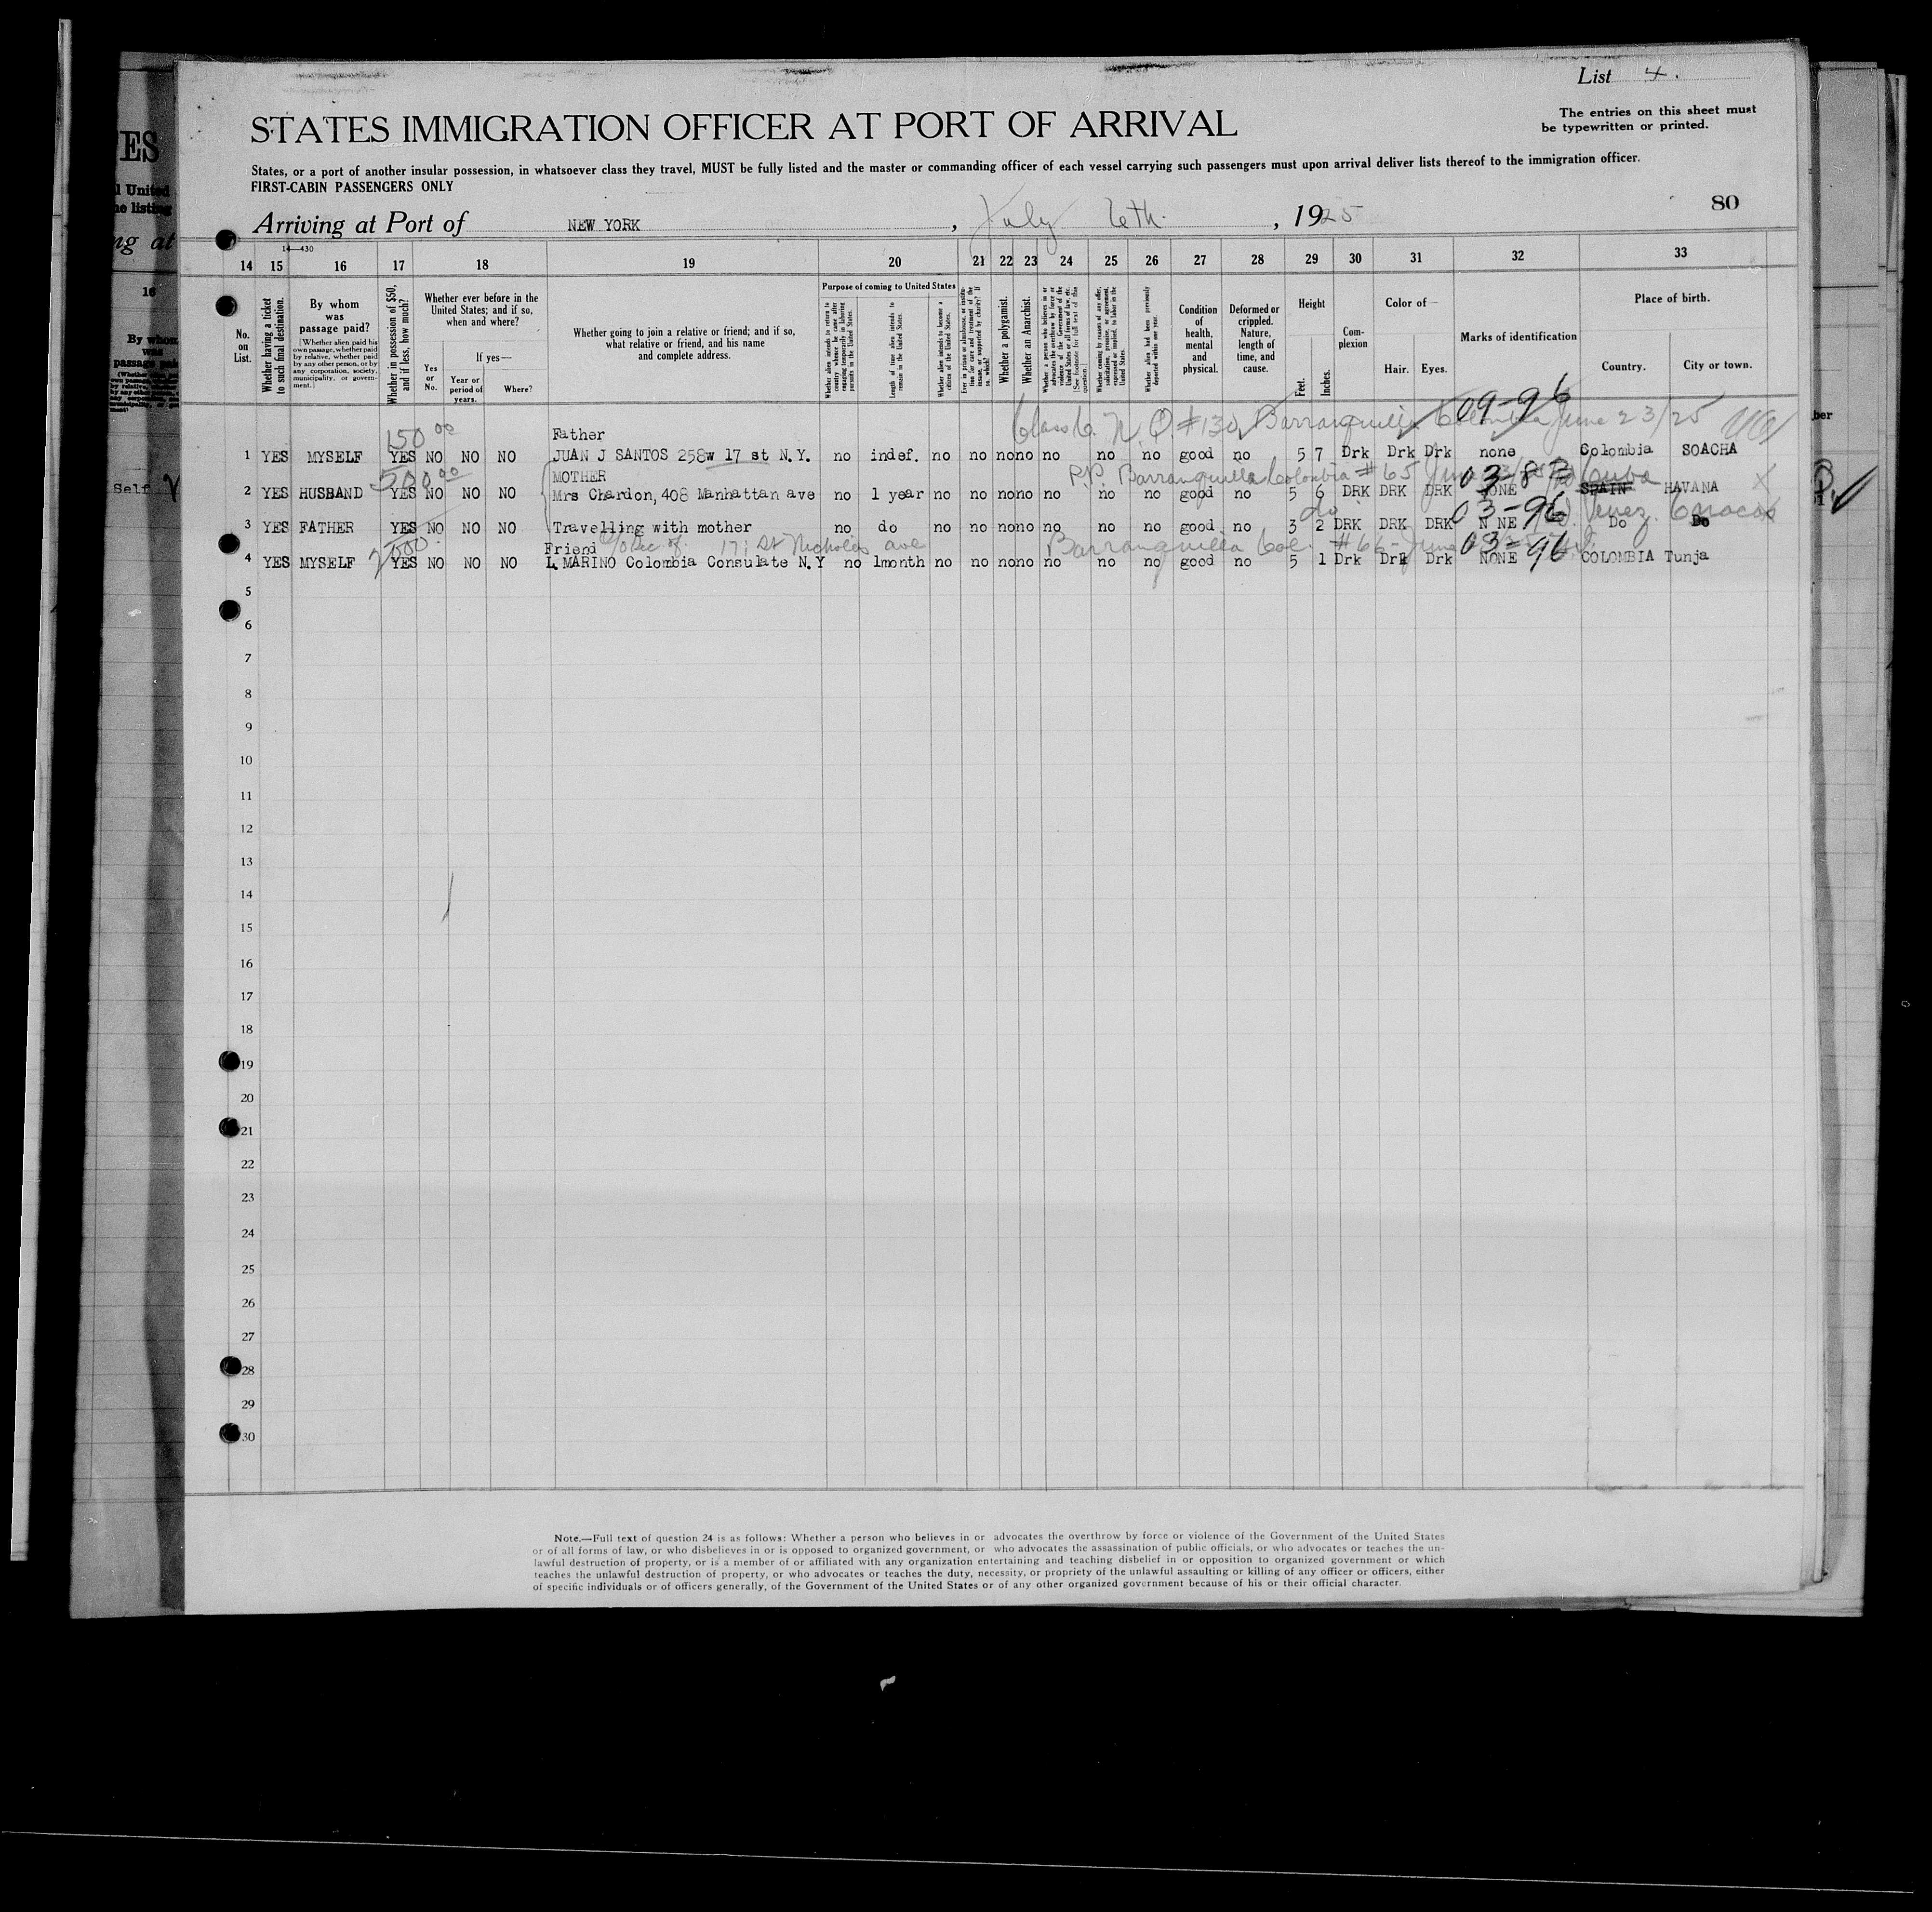 List 4.
The entries on this sheet must
be typewritten or printed.
STATES IMMIGRATION OFFICER AT PORT OF ARRIVAL
States, or a port of another insular possession, in whatsoever class they travel, MUST be fully listed and the master or commanding officer of each vessel carrying such passengers must upon arrival deliver lists thereof to the immigration officer.
FIRST-CABIN PASSENGERS ONLY
80
Arriving at Port of NEW YORK, July 6th, 1925
14—430
14 15 16 17 18 19 20 21 22 23 24 25 26 27 28 29 30 31 32 33
No. on List.
Whether having a ticket to such final destination.
By whom was passage paid?
[Whether alien paid his own passage, whether paid by relative, whether paid by any other person, or by any corporation, society, municipality, or government.]
Whether in possession of $50, and if less, how much?
Whether ever before in the United States; and if so, when and where?
Yes or No.
If yes—
Year or period of years.
Where?
Whether going to join a relative or friend; and if so, what relative or friend, and his name and complete address.
Purpose of coming to United States
Whether alien intends to return to country whence he came after engaging temporarily in laboring pursuits in the United States.
Length of time alien intends to remain in the United States.
Whether alien intends to become a citizen of the United States.
Ever in prison or almshouse, or institution for care and treatment of the insane, or supported by charity? If so, which?
Whether a polygamist.
Whether an Anarchist.
Whether a person who believes in or advocates the overthrow by force or violence of the Government of the United States or all forms of law, etc. (See footnote for full text of this question.)
Whether coming by reason of any offer, solicitation, promise, or agreement, expressed or implied, to labor in the United States.
Whether alien had been previously deported within one year.
Condition of health, mental and physical.
Deformed or crippled. Nature, length of time, and cause.
Height
Feet. Inches.
Complexion
Color of—
Hair. Eyes.
Marks of identification
Place of birth.
Country. City or town.
Class C. N. Q. #130 Barranquilla Colombia June 23/25
09-96
150 00
Father
1 YES MYSELF YES NO NO NO JUAN J SANTOS 258w 17 st N.Y. no indef. no no no no no no no good no 5 7 Drk Drk Drk none Colombia SOACHA
500 00
MOTHER
P.P. Barranquilla Colombia #65 03-87 Cuba
2 YES HUSBAND YES NO NO NO Mrs Chardon, 408 Manhattan ave no 1 year no no no no no no no good no 5 6 DRK DRK DRK NONE SPAIN HAVANA
do 03-96 Venez. Caracas
3 YES FATHER YES NO NO NO Travelling with mother no do no no no no no no no good no 3 2 DRK DRK DRK N NE Do Do
2000
Friend
St Nicholas ave Barranquilla Col. #66 - June 03-96
4 YES MYSELF YES NO NO NO L MARINO Colombia Consulate N.Y no 1month no no no no no no no good no 5 1 Drk Drk Drk NONE COLOMBIA Tunja
5
6
7
8
9
10
11
12
13
14
15
16
17
18
19
20
21
22
23
24
25
26
27
28
29
30
Note.—Full text of question 24 is as follows: Whether a person who believes in or advocates the overthrow by force or violence of the Government of the United States
or of all forms of law, or who disbelieves in or is opposed to organized government, or who advocates the assassination of public officials, or who advocates or teaches the un-
lawful destruction of property, or is a member of or affiliated with any organization entertaining and teaching disbelief in or opposition to organized government or which
teaches the unlawful destruction of property, or who advocates or teaches the duty, necessity, or propriety of the unlawful assaulting or killing of any officer or officers, either
of specific individuals or of officers generally, of the Government of the United States or of any other organized government because of his or their official character.